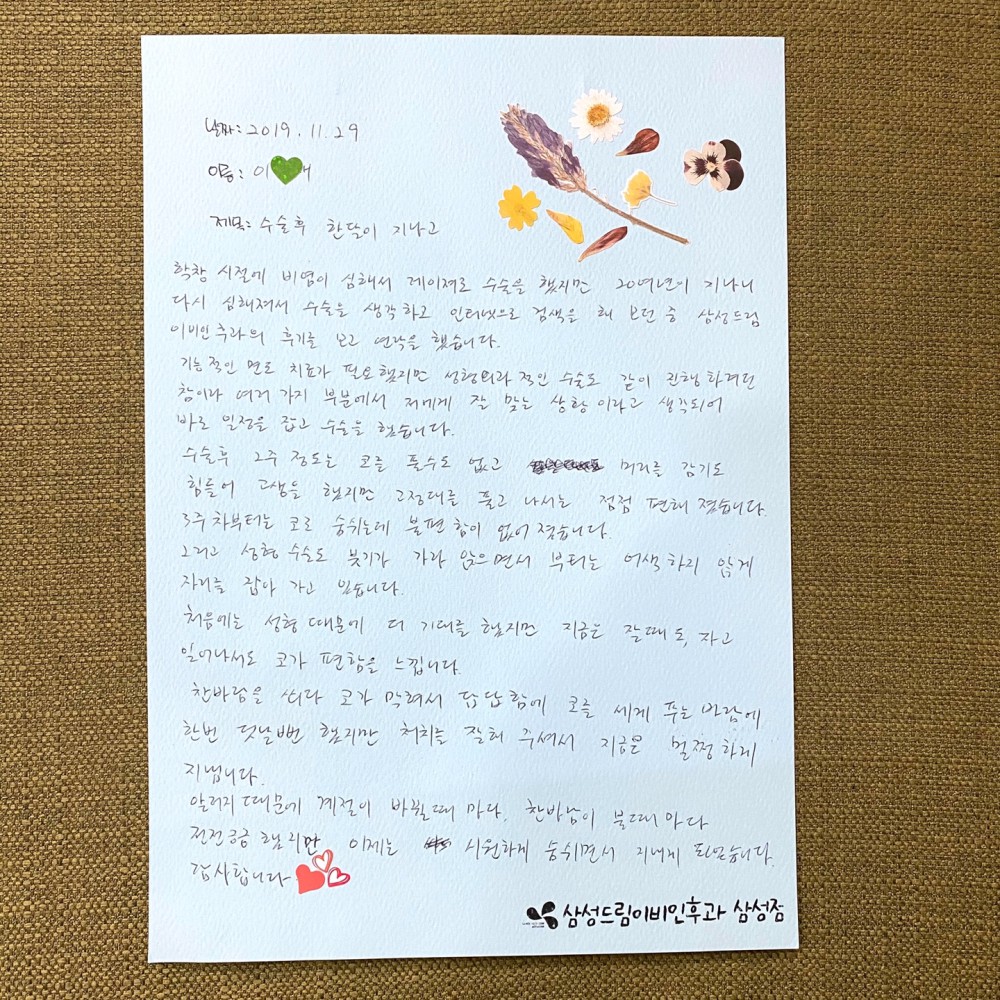 날짜: 2019. 11. 29
이름: 이💚애
제목: 수술후 한달이 지나고
학창 시절에 비염이 심해서 레이져로 수술을 했지만 20여년이 지나니
다시 심해져서 수술을 생각하고 인터넷으로 검색을 해 보던 중 삼성드림
이비인후과의 후기를 보고 연락을 했습니다.
기능적인 면도 치료가 필요했지만 성형외과적인 수술도 같이 진행하려던
참이라 여러가지 부분에서 저에게 잘 맞는 상황이라고 생각되어
바로 일정을 잡고 수술을 했습니다.
수술후 2주 정도는 코를 풀수도 없고 머리를 감기도
힘들어 고생을 했지만 고정대를 풀고 나서는 점점 편해졌습니다.
3주차부터는 코로 숨쉬는데 불편함이 없어졌습니다.
그리고 성형수술도 붓기가 가라앉으면서 부터는 어색하지 않게
자리를 잡아 가고 있습니다.
처음에는 성형 때문에 더 기대를 했지만 지금은 잘때도, 자고
일어나서도 코가 편함을 느낍니다.
찬바람을 쐬다 코가 막혀서 답답함에 코를 세게 푸는 바람에
한번 덧날뻔 했지만 처치를 잘해 주셔서 지금은 멀쩡하게
지냅니다.
알러지 때문에 계절이 바뀔때 마다, 찬바람이 불때마다
전전긍긍 했지만 이제는 시원하게 숨쉬면서 지내게 되었습니다.
감사합니다
삼성드림이비인후과 삼성점